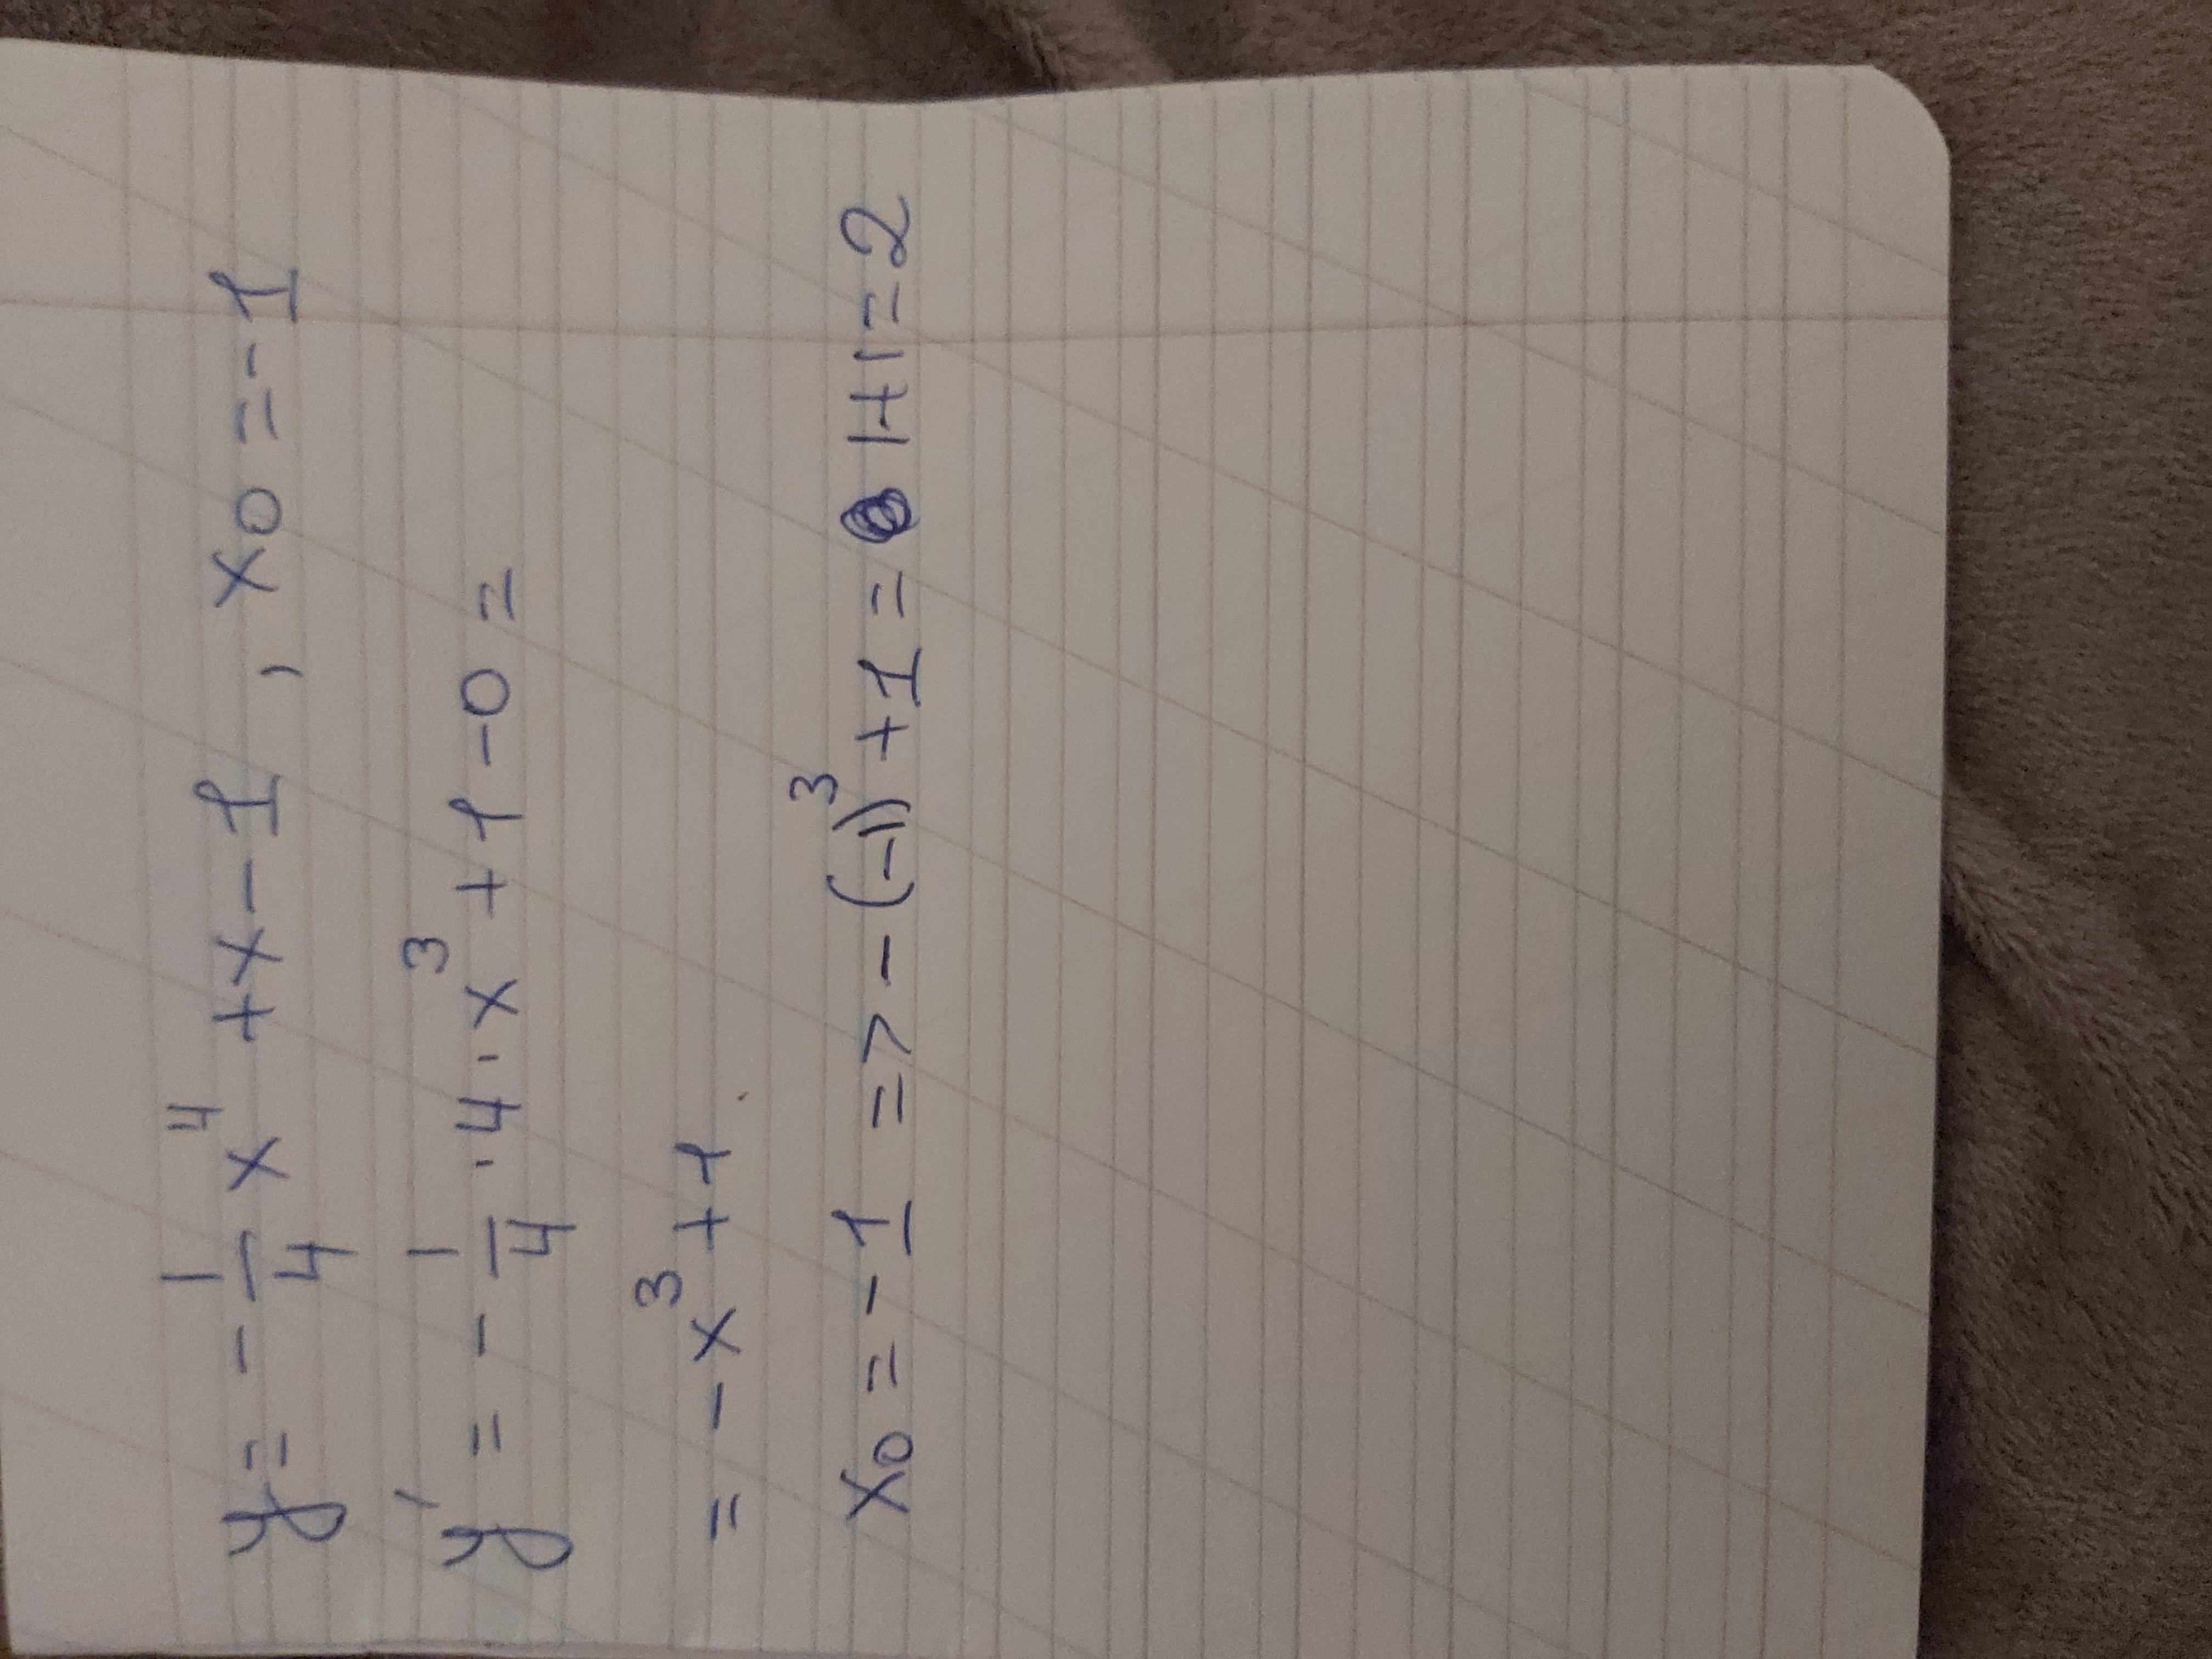 y = - 1/4 x^4 + x - 1 , x0 = - 1
y' = - 1/4 · 4 · x^3 + 1 - 0 =
= - x^3 + 1
x0 = - 1 => - (-1)^3 + 1 = 1 + 1 = 2